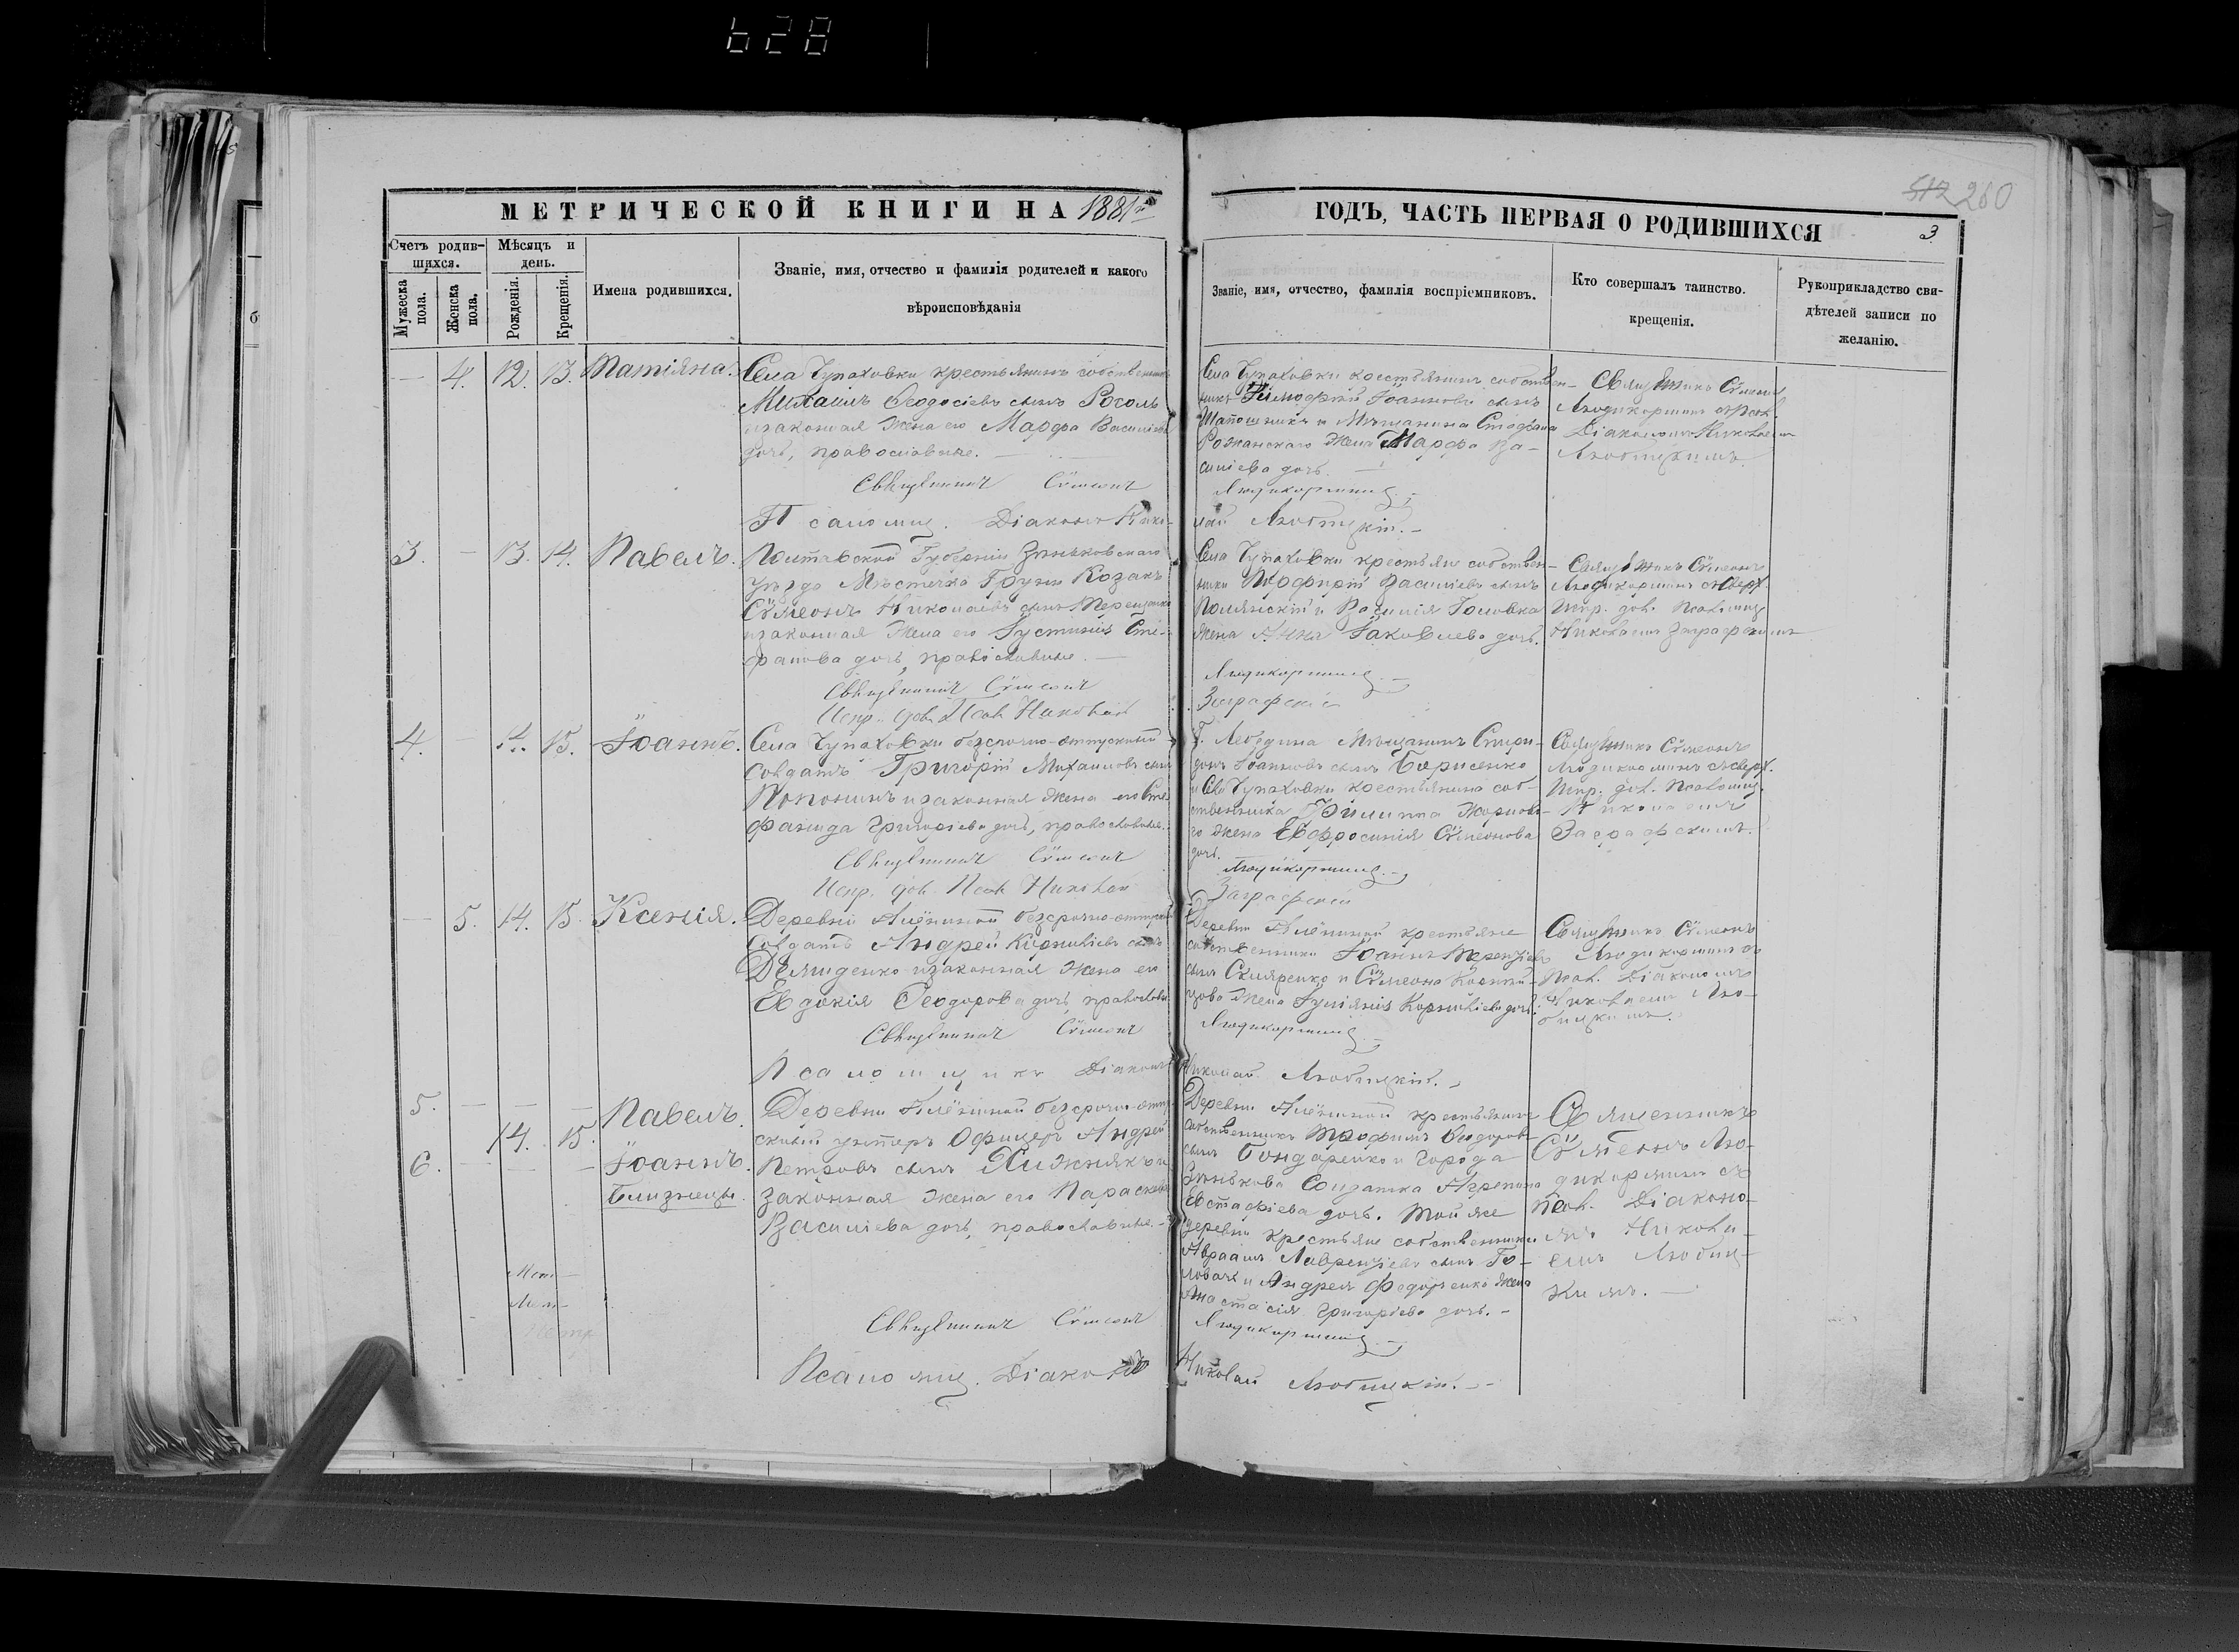 628
МЕТРИЧЕСКОЙ КНИГИ НА 1881й
ГОДЪ, ЧАСТЬ ПЕРВАЯ О РОДИВШИХСЯ
3
512 260
Счетъ родив-
шихся.
Мужеска
пола.
Женска
пола.
Мѣсяцъ и
день.
Рожденія.
Крещенія.
Имена родившихся.
Званіе, имя, отчество и фамилія родителей и какого
вѣроисповѣданія
Званіе, имя, отчество, фамилія воспріемниковъ.
Кто совершалъ таинство
крещенія.
Рукоприкладство сви-
дѣтелей записи по
желанію.
— 4. 12. 13. Татіяна.
Села Чупаховки крестьянинъ собственникъ
Михаилъ Ѳеодосіевъ сынъ Рогол
и законная жена его Марфа Василіева
дочь, православные. —
Священникъ Сѵмеонъ
Псаломщ. Діаконъ Нико-
Села Чупаховки крестьянинъ собствен-
никъ Іоанновъ сынъ
и Мѣщанина Стефана
жена Марфа Ва-
силіева дочь. —
Людикорминъ. —
лай Любицкій. —
Священникъ Сѵмеонъ
Людикорминъ съ Псал.
Діакономъ Николаемъ
Любицкимъ.
3. — 13. 14. Павелъ.
Полтавской Губерніи Зѣньковскаго
уѣзда Мѣстечка Груни Козакъ
Сѵмеонъ Николаевъ сынъ Терещенко
и законная жена его Іустинія Сте-
фанова дочь, православные. —
Священникъ Сѵмеонъ
Испр. дол. Псал. Николай
Села Чупаховки крестьяне собствен-
ники Порфирій Василіевъ сынъ
Полянскій и Василія Головка
жена Анна Іаковлева дочь.
Людикорминъ. —
Заграфскій
Священникъ Сѵмеонъ
Людикорминъ съ
Испр. дол. Псаломщ.
Николаемъ Заграфскимъ
4. — 14. 15. Іоаннъ.
Села Чупаховки безсрочно-отпускный
Солдатъ Григорій Михаиловъ сынъ
и законная жена его Сте-
фанида Григоріева дочь, православные.
Священникъ Сѵмеонъ
Испр. дол. Псал. Николай
Г. Лебедина Мѣщанинъ Спири-
донъ Іоанновъ сынъ Борисенко
и Села Чупаховки крестьянина соб-
ственника Филиппа
жена Евфросинія Сѵмеонова
дочь.
Людикорминъ. —
Заграфскій
Священникъ Сѵмеонъ
Людикорминъ съ
Испр. дол. Псаломщ.
Николаемъ
Заграфскимъ.
— 5. 14. 15. Ксенія.
Деревни Алёшиной безсрочно-отпускный
Солдатъ Андрей Корниліевъ сынъ
Демиденко и законная жена его
Евдокія Ѳеодорова дочь, православные
Священникъ Сѵмеонъ
Псаломщикъ Діаконъ
Деревни Алёшиной крестьяне
собственники Іоаннъ Терентіевъ
сынъ Скляренко и Сѵмеона
жена Іуліянія Корниліева дочь.
Людикорминъ. —
Николай Любицкій. —
Священникъ Сѵмеонъ
Людикорминъ съ
Псал. Діакономъ
Николаемъ Лю-
бицкимъ.
5. — — — Павелъ.
14. 15.
6. — — — Іоаннъ.
Близнецы.
Деревни Алёшиной безсрочно-отпу-
скный унтеръ Офицеръ Андрей
Петровъ сынъ Хижнякъ и
законная жена его Параскева
Василіева дочь, православные. —
Священникъ Сѵмеонъ
Псаломщ. Діаконъ
Деревни Алёшиной крестьянинъ
собственникъ Трофимъ Ѳеодоровъ
сынъ Бондаренко и Города
Зѣнькова Солдатка Агрепина
Евстафіева дочь. Той же
деревни крестьяне собственники
Авраамъ Лаврентіевъ сынъ Го-
ловачъ и Андрея Федоренко жена
Анастасія Григоріева дочь. —
Людикорминъ. —
Николай Любицкій. —
Священникъ
Сѵмеонъ Лю-
дикорминъ съ
Псал. Діаконо-
мъ Никола-
емъ Любиц-
кимъ. —